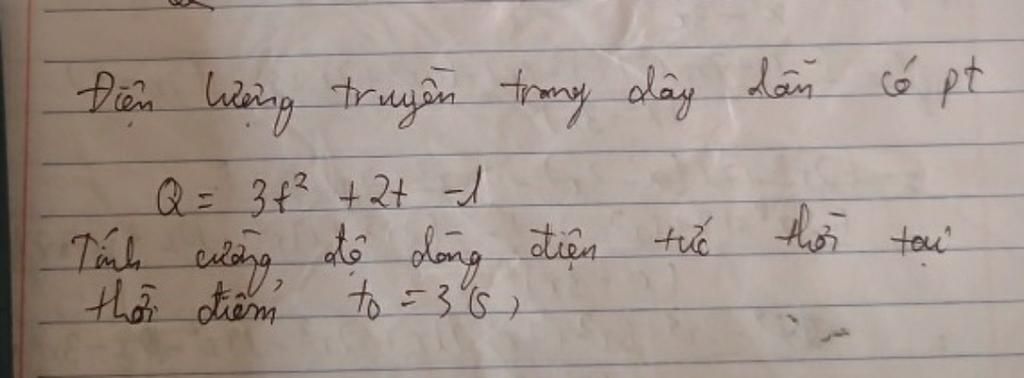 Điện lượng truyền trong dây dẫn có pt
Q = 3t² + 2t - 1
Tính cường độ dòng điện tức thời tại
thời điểm t₀ = 3 (s)